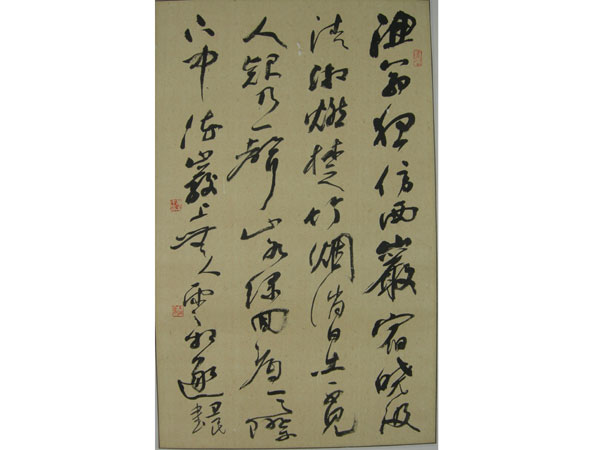 漁翁夜傍西巖宿晓汲
清湘燃楚竹烟消日出不見
人欸乃一聲山水綠回看天際
下中流巖上無心雲相逐書